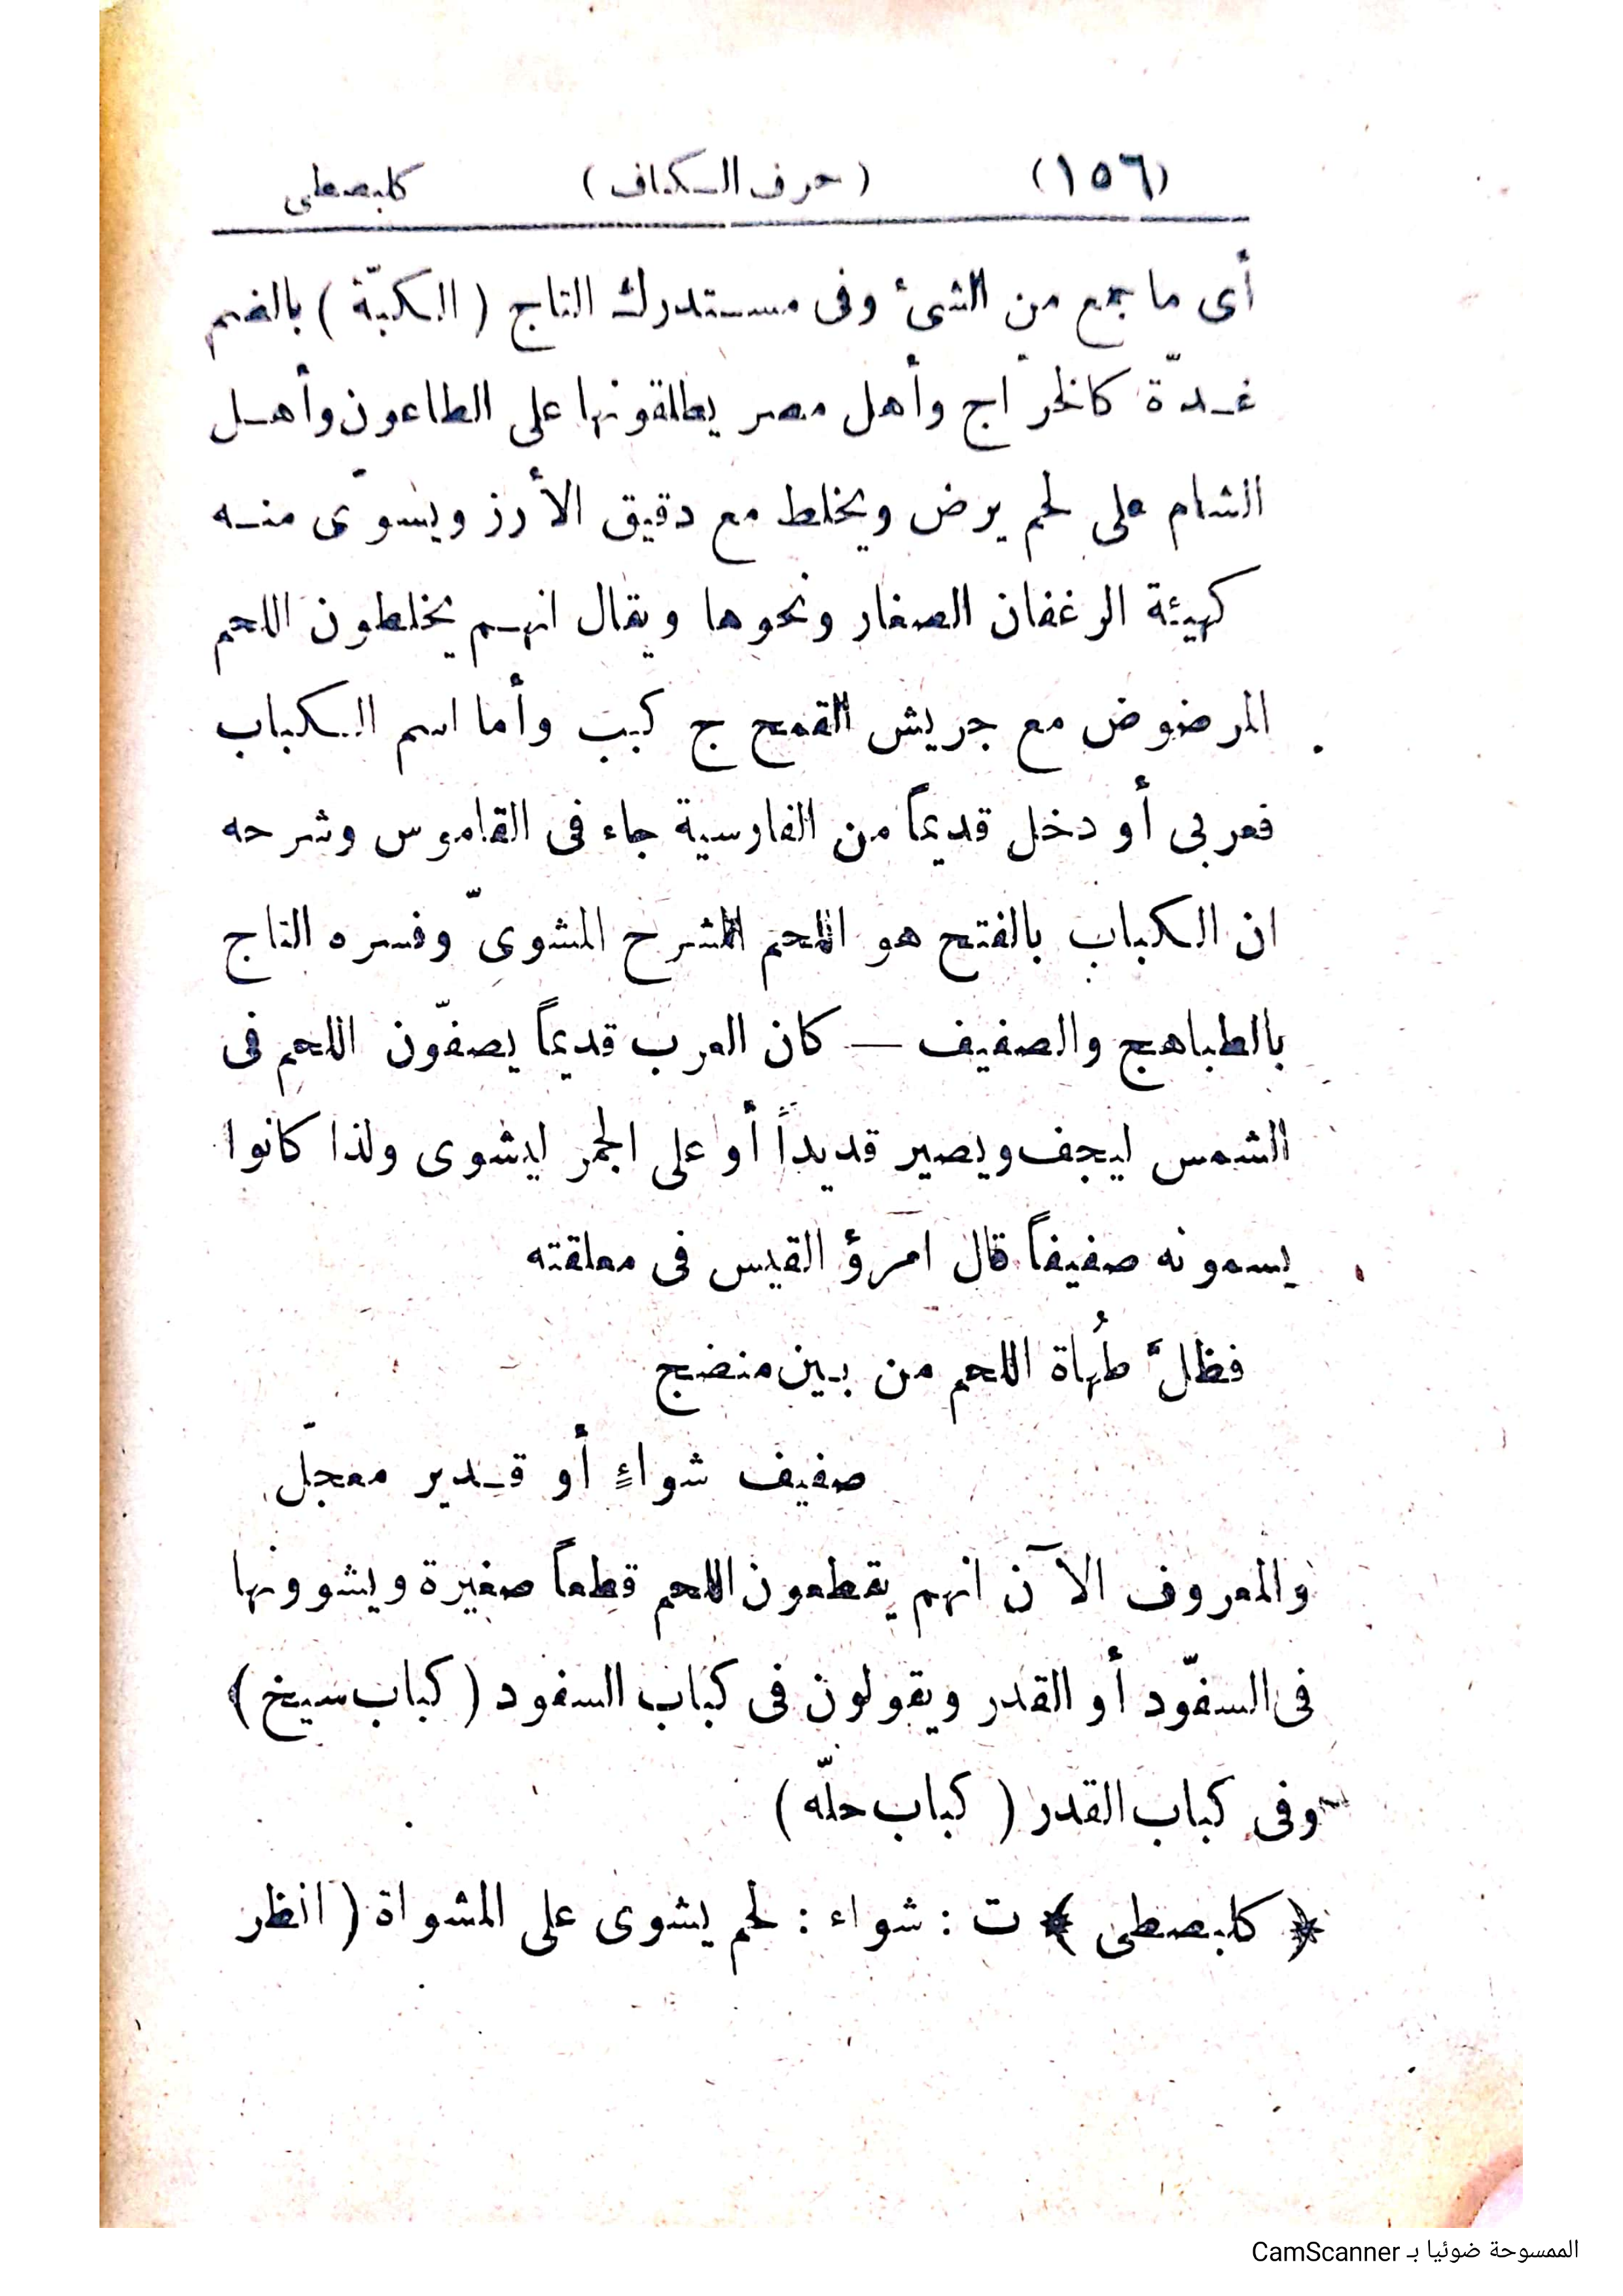 (١٥٦) (حرف الكاف) كلبصطى
أى ما جمع من الشئ وفى مستدرك التاج ( الكبّة ) بالضم
غدّة كالخرّاج وأهل مصر يطلقونها على الطاعون وأهل
الشام على لحم يرض ويخلط مع دقيق الأرز ويسوّى منه
كهيئة الرغفان الصغار ونحوها ويقال انهم يخلطون اللحم
المرضوض مع جريش القمح ج كبب وأما اسم الكباب
فعربى أو دخل قديماً من الفارسية جاء فى القاموس وشرحه
ان الكباب بالفتح هو اللحم المشرح المشوىّ وفسره التاج
بالطباهج والصفيف — كان العرب قديماً يصفّون اللحم فى
الشمس ليجف ويصير قديداً أو على الجمر ليشوى ولذا كانوا
يسمونه صفيفاً قال امرؤ القيس فى معلقته
فظلَّ طُهاة اللحم من بين منضج
صفيف شواءٍ أو قدير معجّل
والمعروف الآن انهم يقطعون اللحم قطعاً صغيرة ويشوونها
فى السفّود أو القدر ويقولون فى كباب السفود ( كباب سيخ )
وفى كباب القدر ( كباب حلّه )
﴿ كلبصطى ﴾ ت : شواء : لحم يشوى على المشواة ( انظر
الممسوحة ضوئيا بـ CamScanner